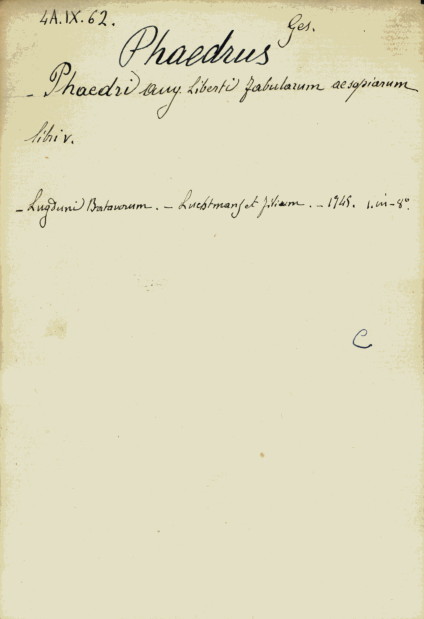 4A.IX.62.
Ges.
Phaedrus
- Phaedri Aug Liberti fabularum aesopiarum
libri v.
- Lugduni Batavorum. - Luchtmans et filium. - 1745. 1. in-8°.
C